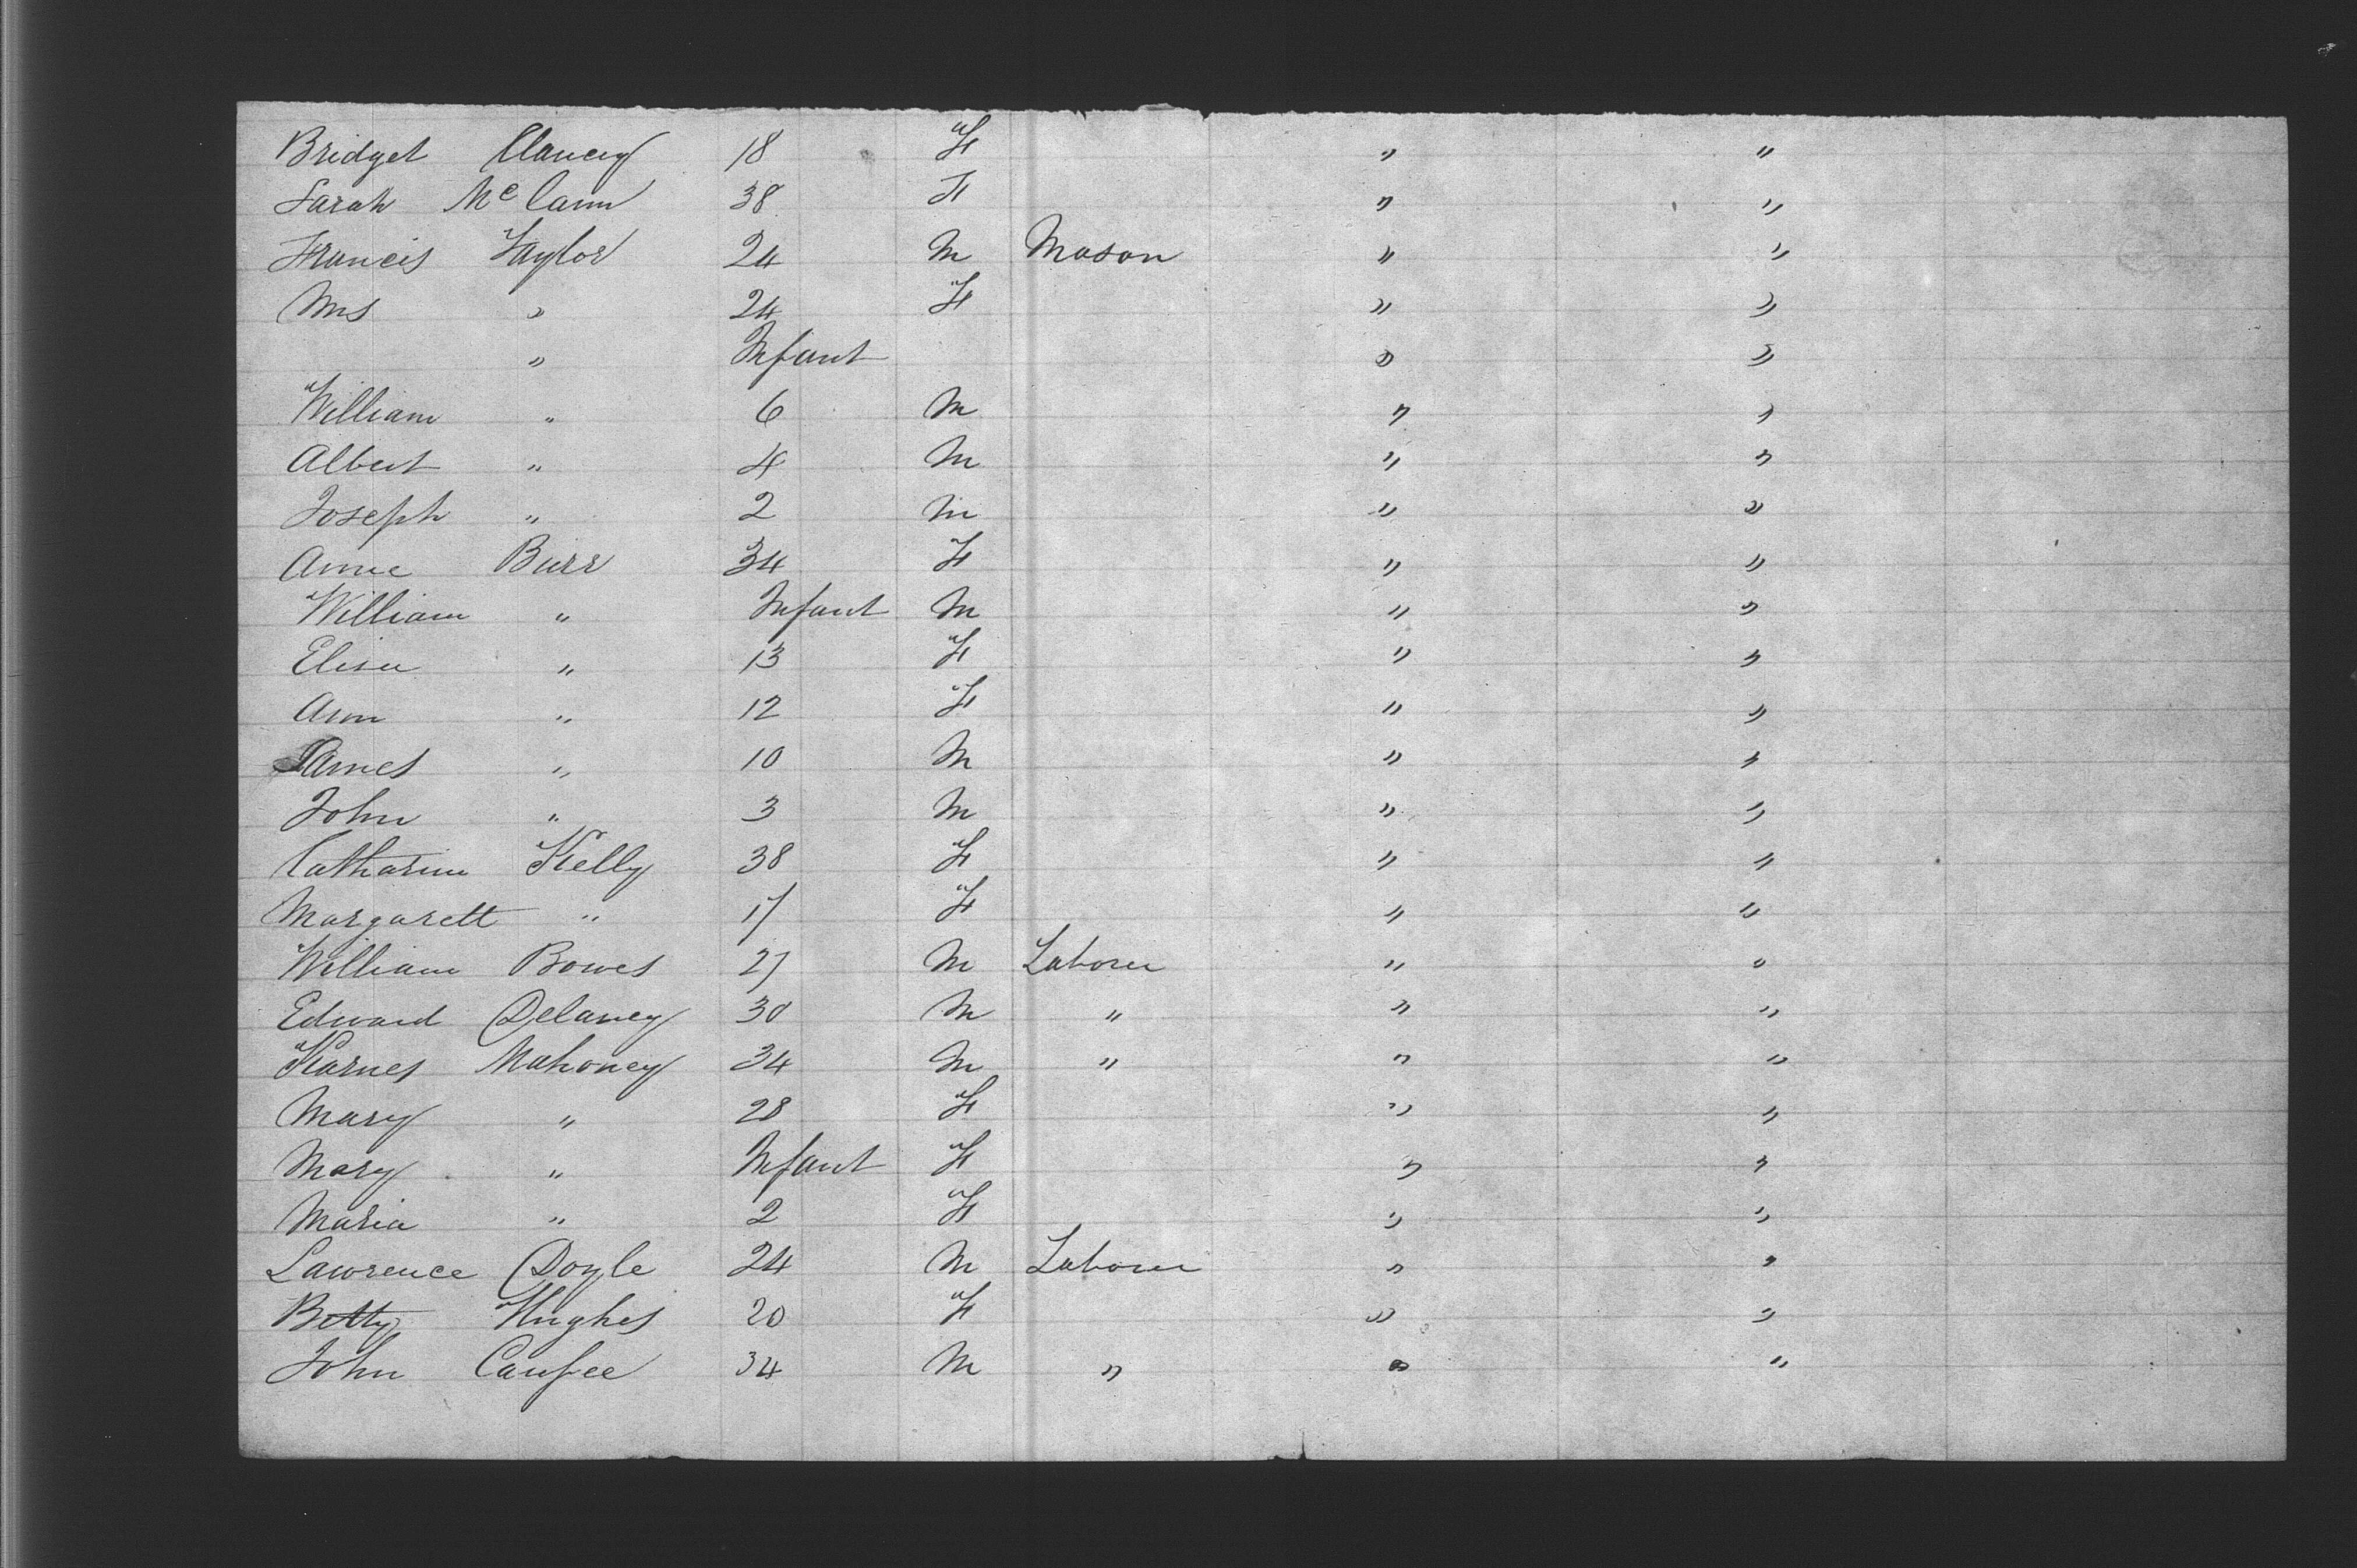 Bridget Clancey 18 F " "
Sarah McCann 38 F " "
Francis Taylor 24 M Mason " "
Mrs " 24 F " "
" Infant " "
William " 6 M " "
Albert " 4 M " "
Joseph " 2 M " "
Anne Burr 34 F " "
William " Infant M " "
Elisa " 13 F " "
Ann " 12 F " "
James " 10 M " "
John " 3 M " "
Catharine Kelly 38 F " "
Margarett " 17 F " "
William Bowes 27 M Laborer " "
Edward Delaney 30 M " " "
Mahoney 34 M " " "
Mary " 28 F " "
Mary " Infant F " "
Maria " 2 F " "
Lawrence Doyle 24 M Laborer " "
Betty Hughes 20 F " "
John 34 M " " "